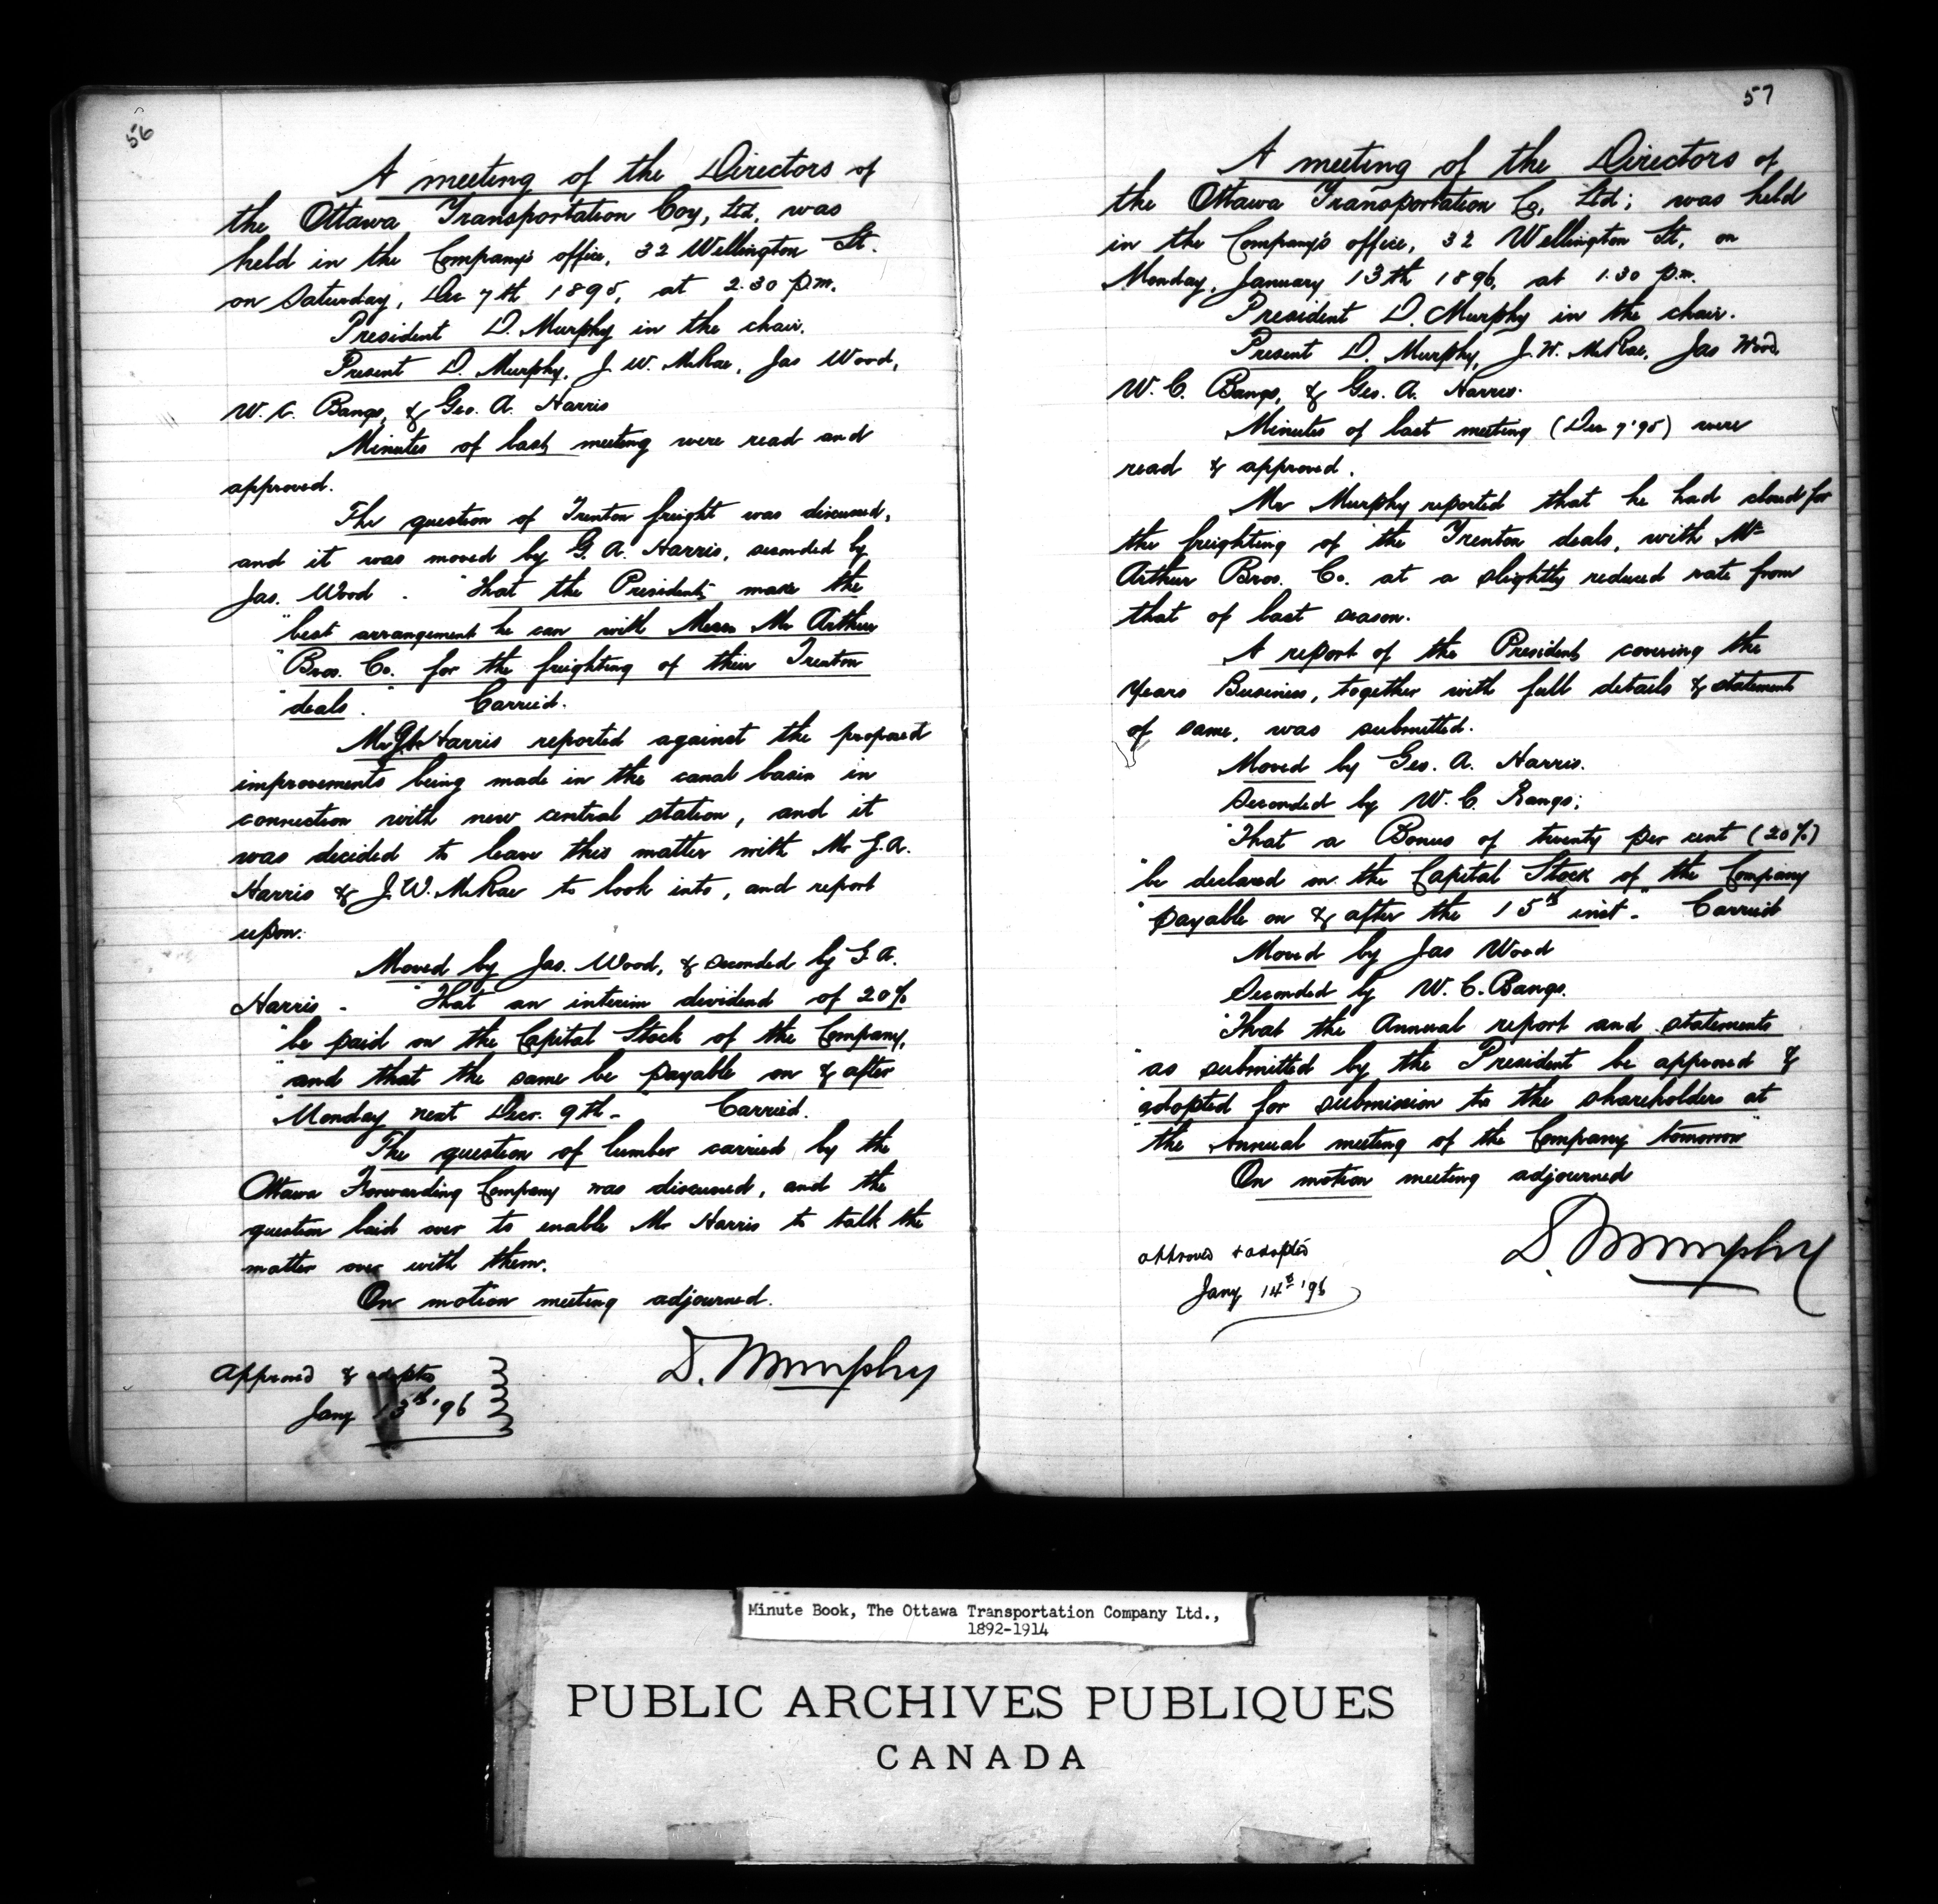 56
A meeting of the Directors of
the Ottawa Transportation Coy, Ltd, was
held in the Company's office, 32 Wellington St.
on Saturday, Dec 7th 1895, at 2.30 p.m.
President D. Murphy in the chair.
Present D. Murphy, J. W. McRae, Jas Wood,
W. C. Bangs, & Geo. A. Harris
Minutes of last meeting were read and
approved.
The question of Trenton freight was discussed,
and it was moved by G. A. Harris, seconded by
Jas. Wood. "That the President make the
"best arrangement he can with Messrs McArthur
"Bros. Co. for the freighting of their Trenton
"deals." Carried.
Mr Harris reported against the proposed
improvements being made in the canal basin in
connection with new central station, and it
was decided to leave this matter with Mr G. A.
Harris & J. W. McRae to look into, and report
upon.
Moved by Jas. Wood, & seconded by G A.
Harris - "That an interim dividend of 20%
"be paid on the Capital Stock of the Company,
"and that the same be payable on & after
"Monday next Decr. 9th - " Carried.
The question of lumber carried by the
Ottawa Forwarding Company was discussed, and the
question laid over to enable Mr Harris to talk the
matter over with them.
On motion meeting adjourned.
D. Murphy
Approved & adopted
Jany 13th '96
57
A meeting of the Directors of
the Ottawa Transportation Co, Ltd; was held
in the Company's office, 32 Wellington St, on
Monday, January 13th 1896, at 1.30 p.m.
President D. Murphy in the chair.
Present D. Murphy, J. W. McRae, Jas Wood,
W. C. Bangs, & Geo. A. Harris.
Minutes of last meeting (Dec 7'95) were
read & approved.
Mr Murphy reported that he had closed for
the freighting of the Trenton deals, with Mc
Arthur Bros. Co. at a slightly reduced rate from
that of last season.
A report of the President covering the
Years Business, together with full details & statement
of same, was submitted.
Moved by Geo. A. Harris.
Seconded by W. C. Bangs;
"That a Bonus of twenty per cent (20%)
"be declared on the Capital Stock of the Company
"payable on & after the 15th inst." Carried
Moved by Jas Wood
Seconded by W. C. Bangs.
"That the Annual report and statements
"as submitted by the President be approved &
"adopted for submission to the shareholders at
"the Annual meeting of the Company tomorrow"
On motion meeting adjourned
D. Murphy
approved & adopted
Jany 14th '96
Minute Book, The Ottawa Transportation Company Ltd.,
1892-1914
PUBLIC ARCHIVES PUBLIQUES
CANADA